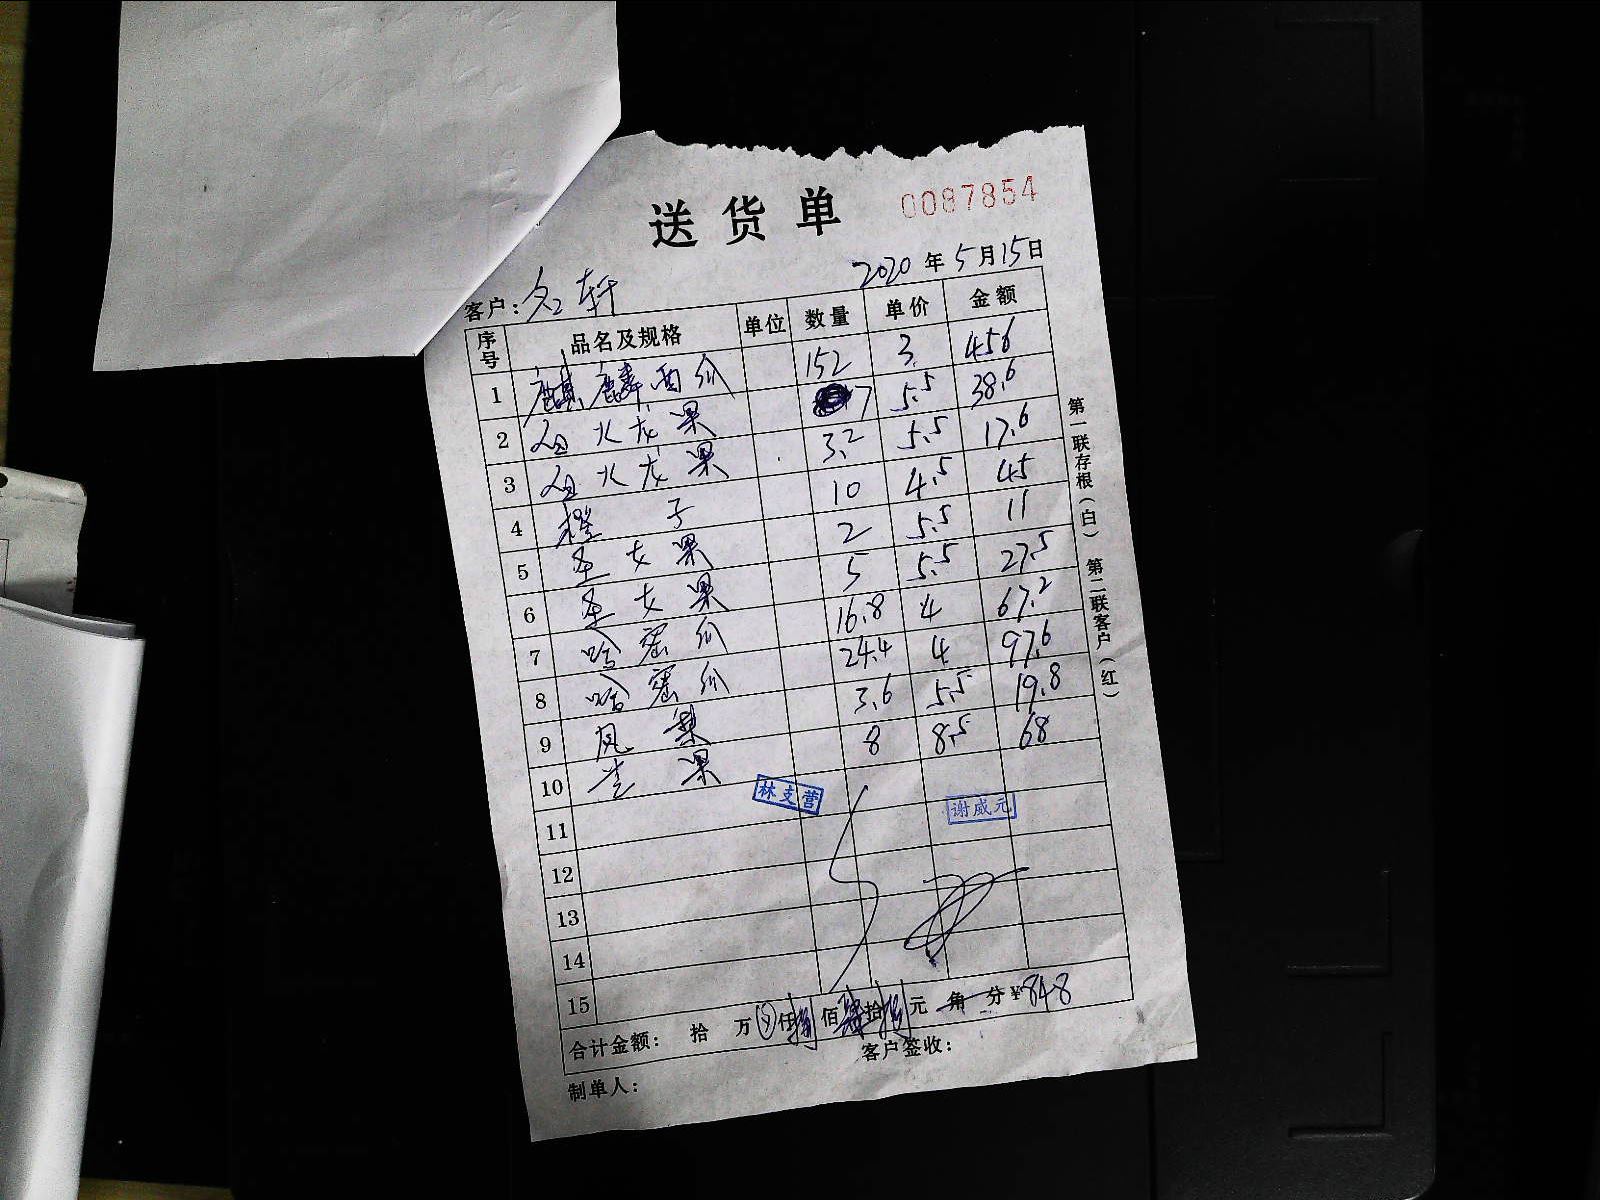 送货单 0087854
2020年5月15日
客户：名轩
序号 品名及规格 单位 数量 单价 金额
1 麒麟西瓜 152 3 456
2 白火龙果 7 5.5 38.6
3 白火龙果 3.2 5.5 17.6
4 橙子 10 4.5 45
5 圣女果 2 5.5 11
6 圣女果 5 5.5 27.5
7 哈蜜瓜 16.8 4 67.2
8 哈蜜瓜 24.4 4 97.6
9 凤梨 3.6 5.5 19.8
10 芒果 8 8.5 68
林支营 谢威元
11
12
13
14
15
合计金额： 拾 万 仟捌佰肆拾捌元 角 分 ¥848
制单人： 客户签收：
第一联存根（白） 第二联客户（红）